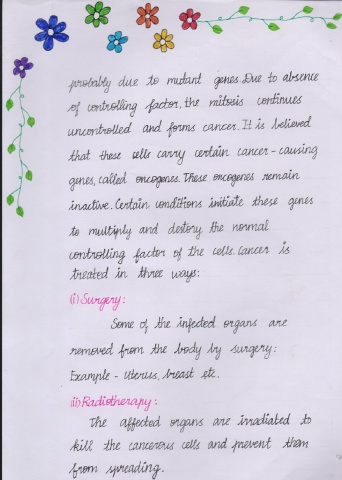 probably due to mutant genes. Due to absence
of controlling factor, the mitosis continues
uncontrolled and forms cancer. It is believed
that these cells carry certain cancer - causing
genes, called oncogenes. These oncogenes remain
inactive. Certain conditions initiate these genes
to multiply and destory the normal
controlling factor of the cells. Cancer is
treated in three ways:
(i) Surgery:
Some of the infected organs are
removed from the body by surgery:
Example - Uterus, breast etc.
(ii) Radiotherapy:
The affected organs are irradiated to
kill the cancerous cells and prevent them
from spreading.